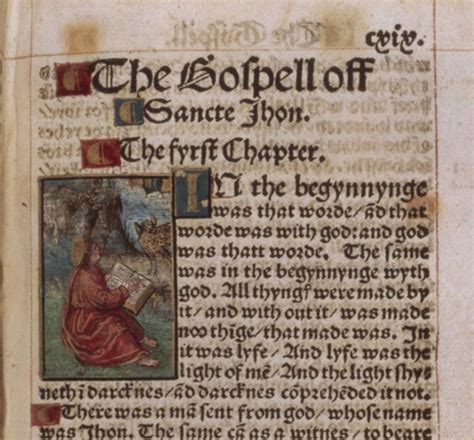 cxix.
The Gospell off
Sancte Jhon.
The fyrst Chapter.
IN the begynnynge
was that worde/ ād that
worde was with god: and god
was thatt worde. The same
was in the begynnynge wyth
god. All thyngꝭ were made by
it/ and with out it/ was made
noo thīge/ that made was. In
it was lyfe/ And lyfe was the
light of mē/ And the light shy-
neth ī darcknes/ ād darcknes cōprehēded it not.
There was a mā sent from god/ whose name
was Jhon. The same cā as a witnes/ to beare